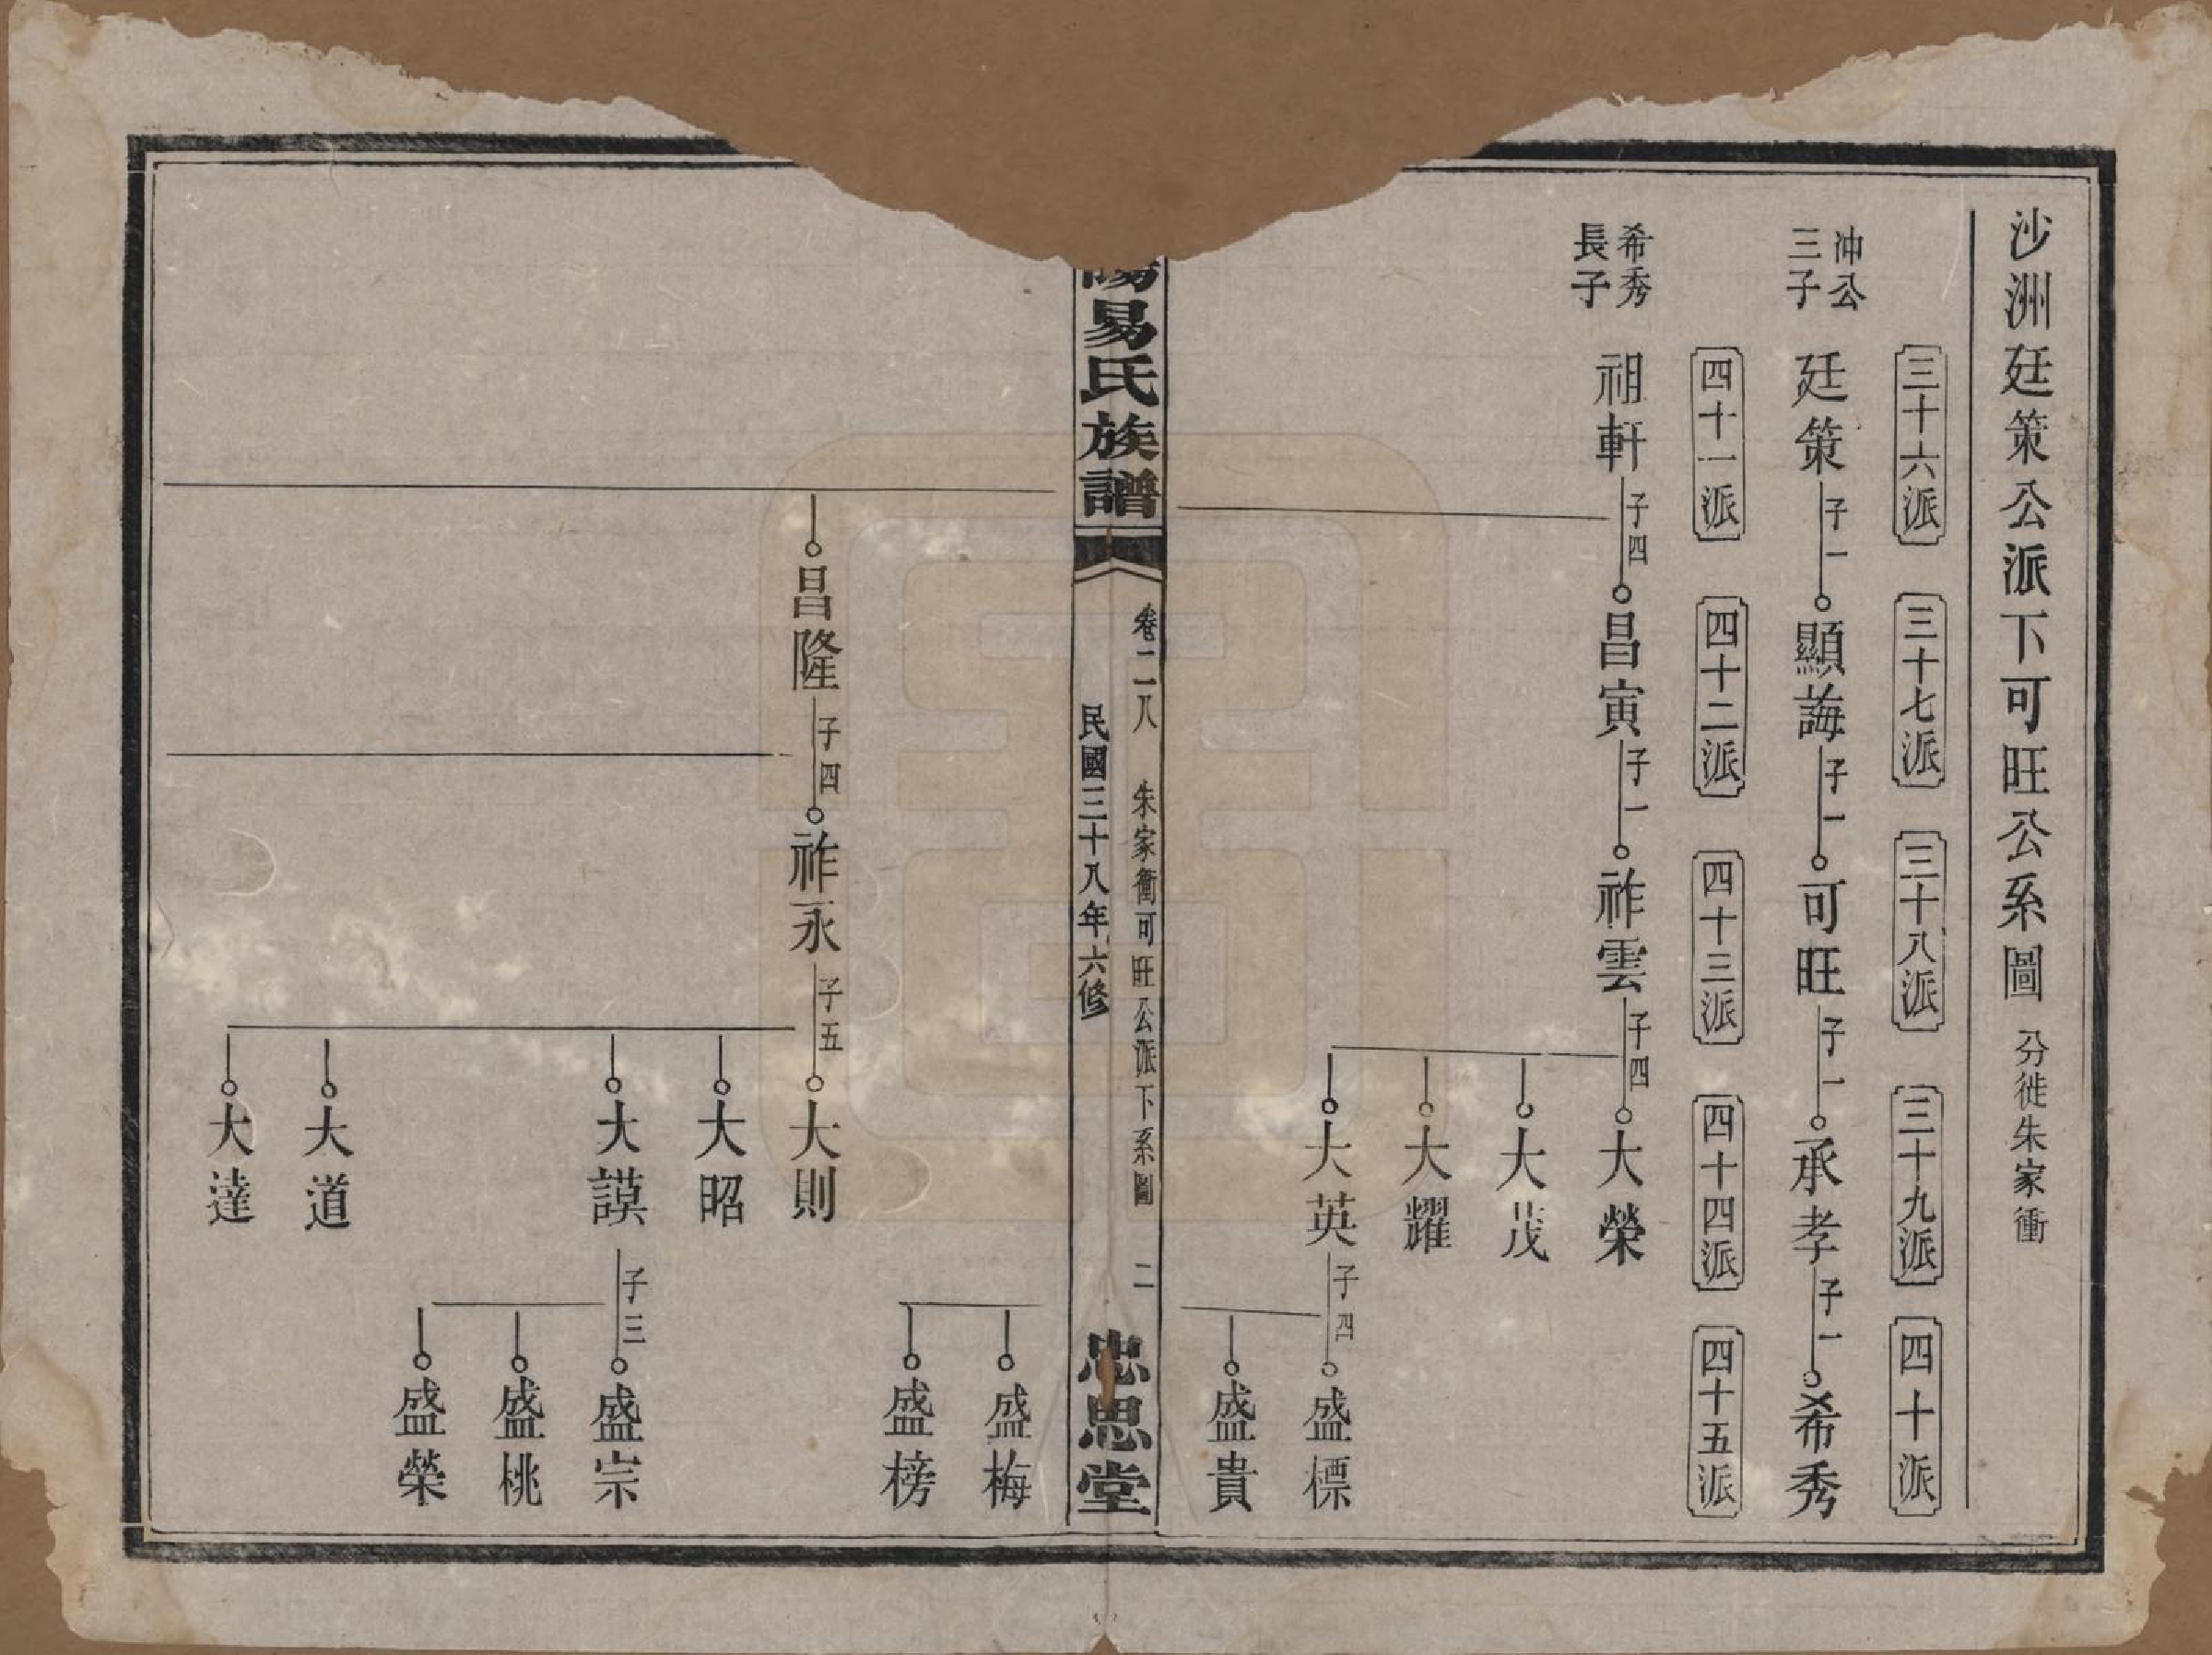 沙洲廷策公派下可旺公系圖 分徙朱家衝
三十六派 三十七派 三十八派 三十九派 四十派
冲公三子 廷策 子一 顯誨 子一 可旺 子一 承孝 子一 希秀
四十一派 四十二派 四十三派 四十四派 四十五派
希秀長子 祖軒 子四 昌寅 子一 祚雲 子四 大榮
大茂
大耀
大英 子四 盛標
盛貴
陽易氏族譜 卷二八 朱家衝可旺公派下系圖 二
民國三十八年六修 忠思堂
盛梅
盛榜
昌隆 子四 祚永 子五 大則
大昭
大謨 子三 盛宗
盛桃
盛榮
大道
大達